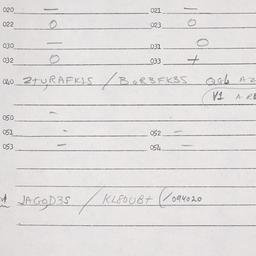 020 — 021 —
022 O 023 O
030 — 031 O
032 O 033 +
040 Z+URAFK1S / BOR3FK3S
V1
050 -
051 - 052 -
053 - 054 -
JAGOD3S / KL80UB+ (/094020